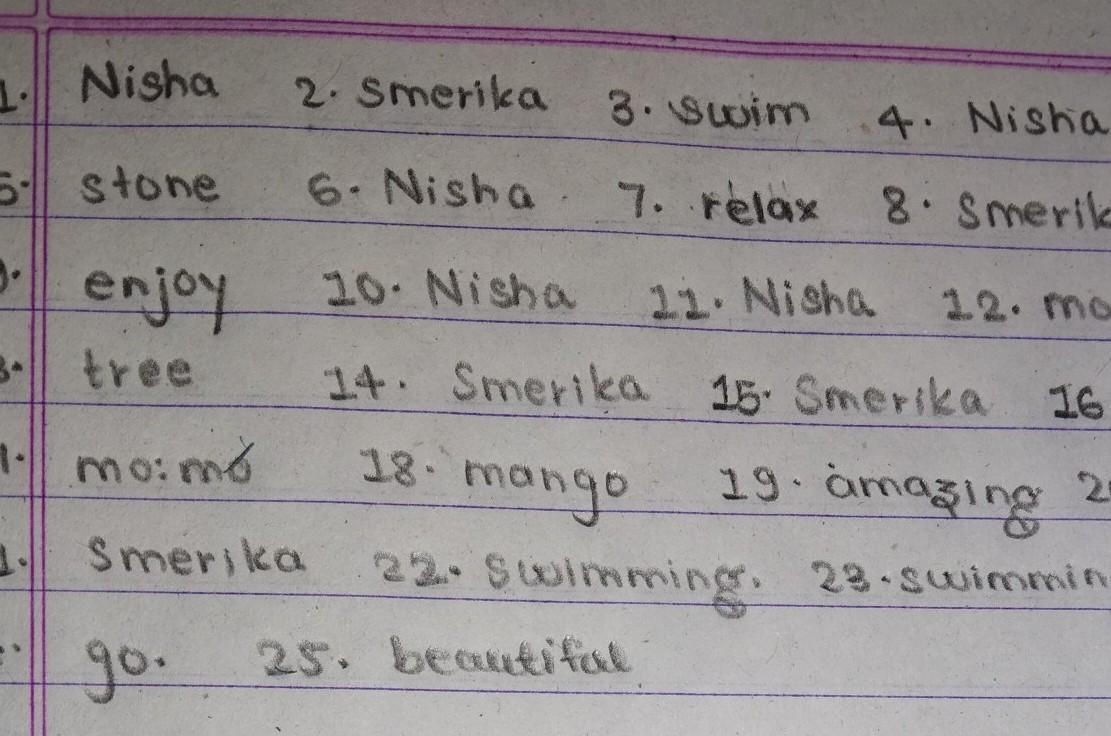 1. Nisha 2. Smerika 3. swim 4. Nisha
5. stone 6. Nisha 7. relax 8. Smerik
9. enjoy 10. Nisha 11. Nisha 12. mo
3. tree 14. Smerika 15. Smerika 16
mo:mo 18. mango 19. amazing 2
1. Smerika 22. Swimming. 23. swimmin
go. 25. beautiful